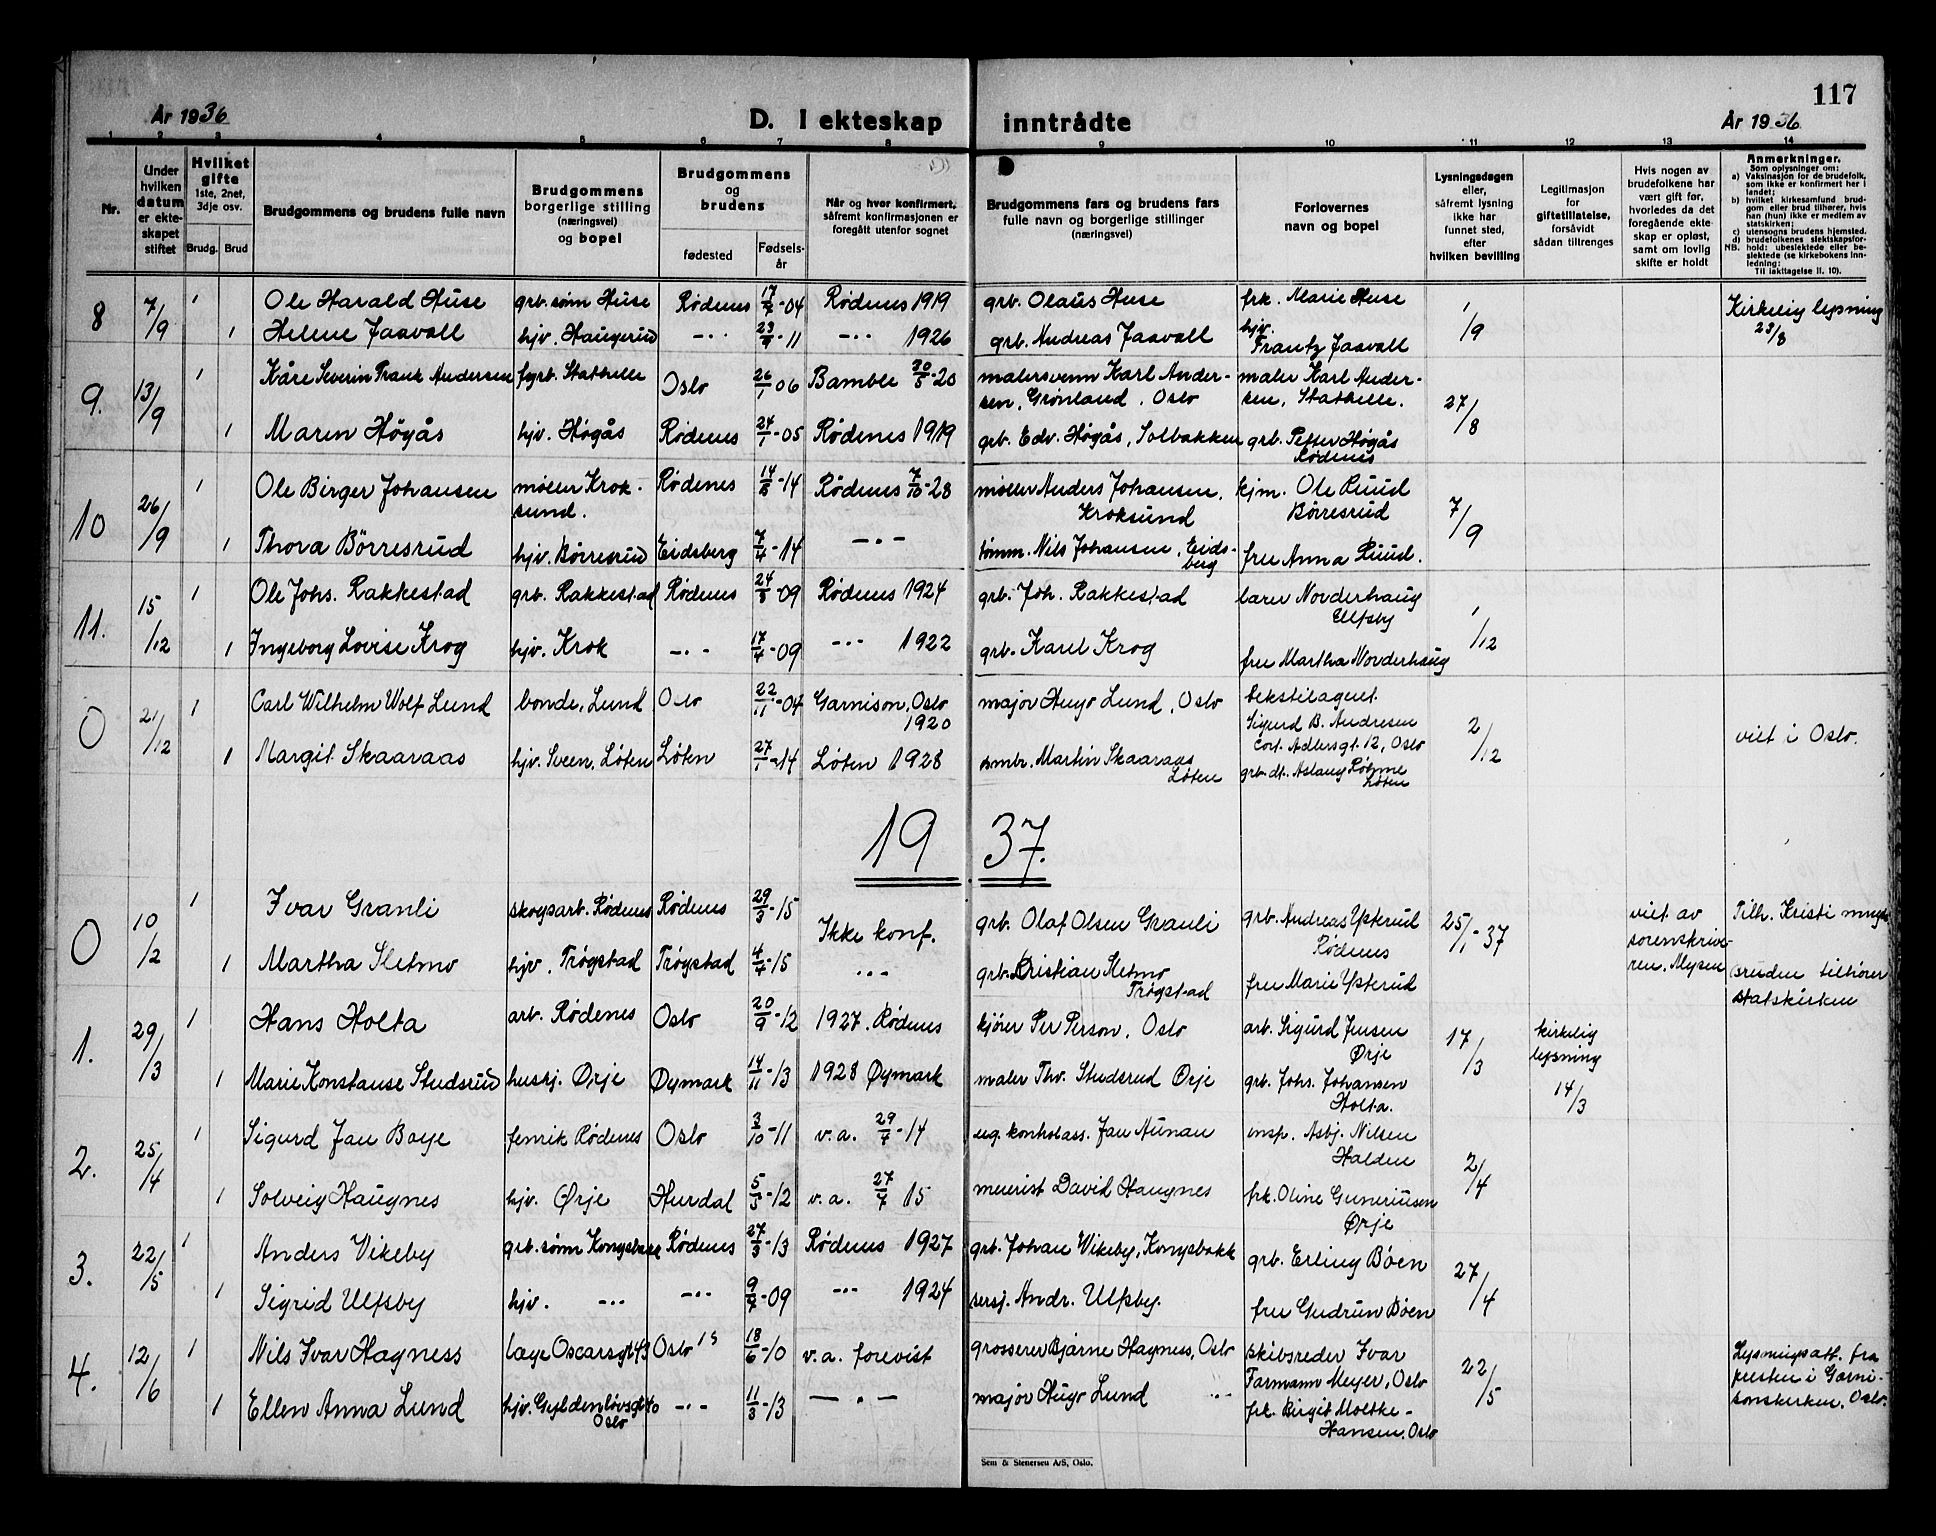 117
År 1936
D. I ekteskap inntrådte
År 1936
1 2 3 4 5 6 7 8 9 10 11 12 13 14
Nr.
Under hvilken datum er ekteskapet stiftet
Hvilket gifte 1ste, 2net, 3dje osv.
Brudg. Brud
Brudgommens og brudens fulle navn
Brudgommens borgerlige stilling (næringsvei) og bopel
Brudgommens og brudens
fødested
Fødselsår
Når og hvor konfirmert, såfremt konfirmasjonen er foregått utenfor sognet
Brudgommens fars og brudens fars fulle navn og borgerlige stillinger (næringsvei)
Forlovernes navn og bopel
Lysningsdagen eller, såfremt lysning ikke har funnet sted, efter hvilken bevilling
Legitimasjon for giftetillatelse, forsåvidt sådan tiltrenges
Hvis nogen av brudefolkene har vært gift før, hvorledes da det foregående ekteskap er opløst, samt om lovlig skifte er holdt
Anmerkninger.
Som oplysninger om:
a) Vaksinasjon for de brudefolk, som ikke er konfirmert her i landet;
b) hvilket kirkesamfund brudgom eller brud tilhører, hvis han (hun) ikke er medlem av statskirken;
c) utensogns brudens hjemsted.
d) brudefolkenes slektskapsforhold: ubeslektede eller beslektede (se kirkebokens innledning:
NB. Til iakttagelse II. 10).
8 7/9 1 Ole Harald Huse grb. sønn Huse Rødenes 17/7-04 Rødenes 1919 grb. Olaus Huse frk. Marie Huse 1/9 Kirkelig lysning 23/8
1 Helene Jaavall hjv. Haugerud -"- 23/9-11 -"- 1926 grb. Andreas Jaavall hjv. Frantz Jaavall
9. 13/9 1 Kåre Severin Frank Andersen fgrb. Stathelle Oslo 26/1 06 Bamble 30/5-20 malersvenn Karl Andersen, Grønland, Oslo maler Karl Andersen, Stathelle. 27/8
1 Maren Høgås hjv. Høgås Rødenes 24/1-05 Rødenes 1919 grb. Edv. Høgås, Solbakken grb. Petter Høgås Rødenes
10 26/9 1 Ole Birger Johansen møller Kroksund. Rødenes 14/8-14 Rødenes 7/10-28 møller Anders Johansen, Kroksund kjm. Ole Ruud Børresrud 7/9
1 Thora Børresrud hjv. Børresrud Eidsberg 7/4-14 -"- tømm. Nils Johansen, Eidsberg fru Anna Ruud.
11. 15/12 1 Ole Johs. Rakkestad grb. Rakkestad Rødenes 24/8-09 Rødenes 1924 grb. Joh. Rakkestad lærer Novderhaug Ulfsby 1/12
1 Ingeborg Lovise Krog hjv. Krok -"- 17/4-09 -"- 1922 grb. Karel Krog fru Martha Novderhaug
0 21/12 1 Carl Wilhelm Wolf Lund bonde, Lund Oslo 22/11-04 Garnison, Oslo 1920 major Hugo Lund, Oslo Sigurd B. Andresen Cort Adlersgt. 12, Oslo 2/12 viet i Oslo.
1 Margit Skaaraas hjv. Sveen, Løten Løten 27/1-14 Løten 1928 smbr. Martin Skaaraas Løten grb. dt. Aslaug Røhme Løten
1937.
0 10/2 1 Ivar Granli skogsarb. Rødenes Rødenes 29/3-15 Ikke konf. grb. Olaf Olsen Granli grb. Andreas Ysterud Rødenes 25/1-37 viet av sorenskriveren, Mysen Tilh. Kristi
1 Martha Sletmo hjv. Trøgstad Trøgstad 4/4-15 -"- grb. Kristian Sletmo Trøgstad fru Marie Ysterud bruden tilhører statskirken
1. 29/3 1 Hans Holta arb. Rødenes Oslo 20/9-12 1927. Rødenes kjører Per Person, Oslo arb. Sigurd Jensen Ørje 17/3 kirkelig lysning 14/3
1 Marie Konstanse Studsrud hushj. Ørje Øymark 14/11-13 1928 Øymark maler Thv. Studsrud Ørje grb. Johs. Johansen Holta.
2. 25/4 1 Sigurd Jan Boye fenrik Rødenes Oslo 3/10-11 v.a. 29/7-14 ug. kontolass. Jan Aunan insp. Asbj. Nilsen Halden 2/4
1 Solveig Haugnes hjv. Ørje Hurdal 5/5-12 v.a. 27/7 15 meierist David Haugnes frk. Oline Guneriusen Ørje
3. 22/5 1 Anders Vikeby grb. sønn Kongsbakk Rødenes 27/3-13 Rødenes 1927 grb. Johan Vikeby, Kongsbakk grb. Erling Bøen 27/4
1 Sigrid Ulfsby hjv. -"- -"- 9/7-09 -"- 1924 sersj. Andr. Ulfsby. fru Gudrun Bøen
4. 12/6 1 Nils Ivar Hagness læge Oscarsgt 43 Oslo 18/6-10 v.a. forevist grosserer Bjarne Hagness, Oslo skibsreder Ivar Farmann Meyer, Oslo 22/5 Lysningsatt. fra presten i Garnisonskirken, Oslo.
1 Ellen Anna Lund hjv. Gyldenløvsgt 40 Oslo -"- 11/3-13 -"- major Hugo Lund -"- frk. Birgit Moltke-Hansen, Oslo
Sem & Stenersen A/S, Oslo.